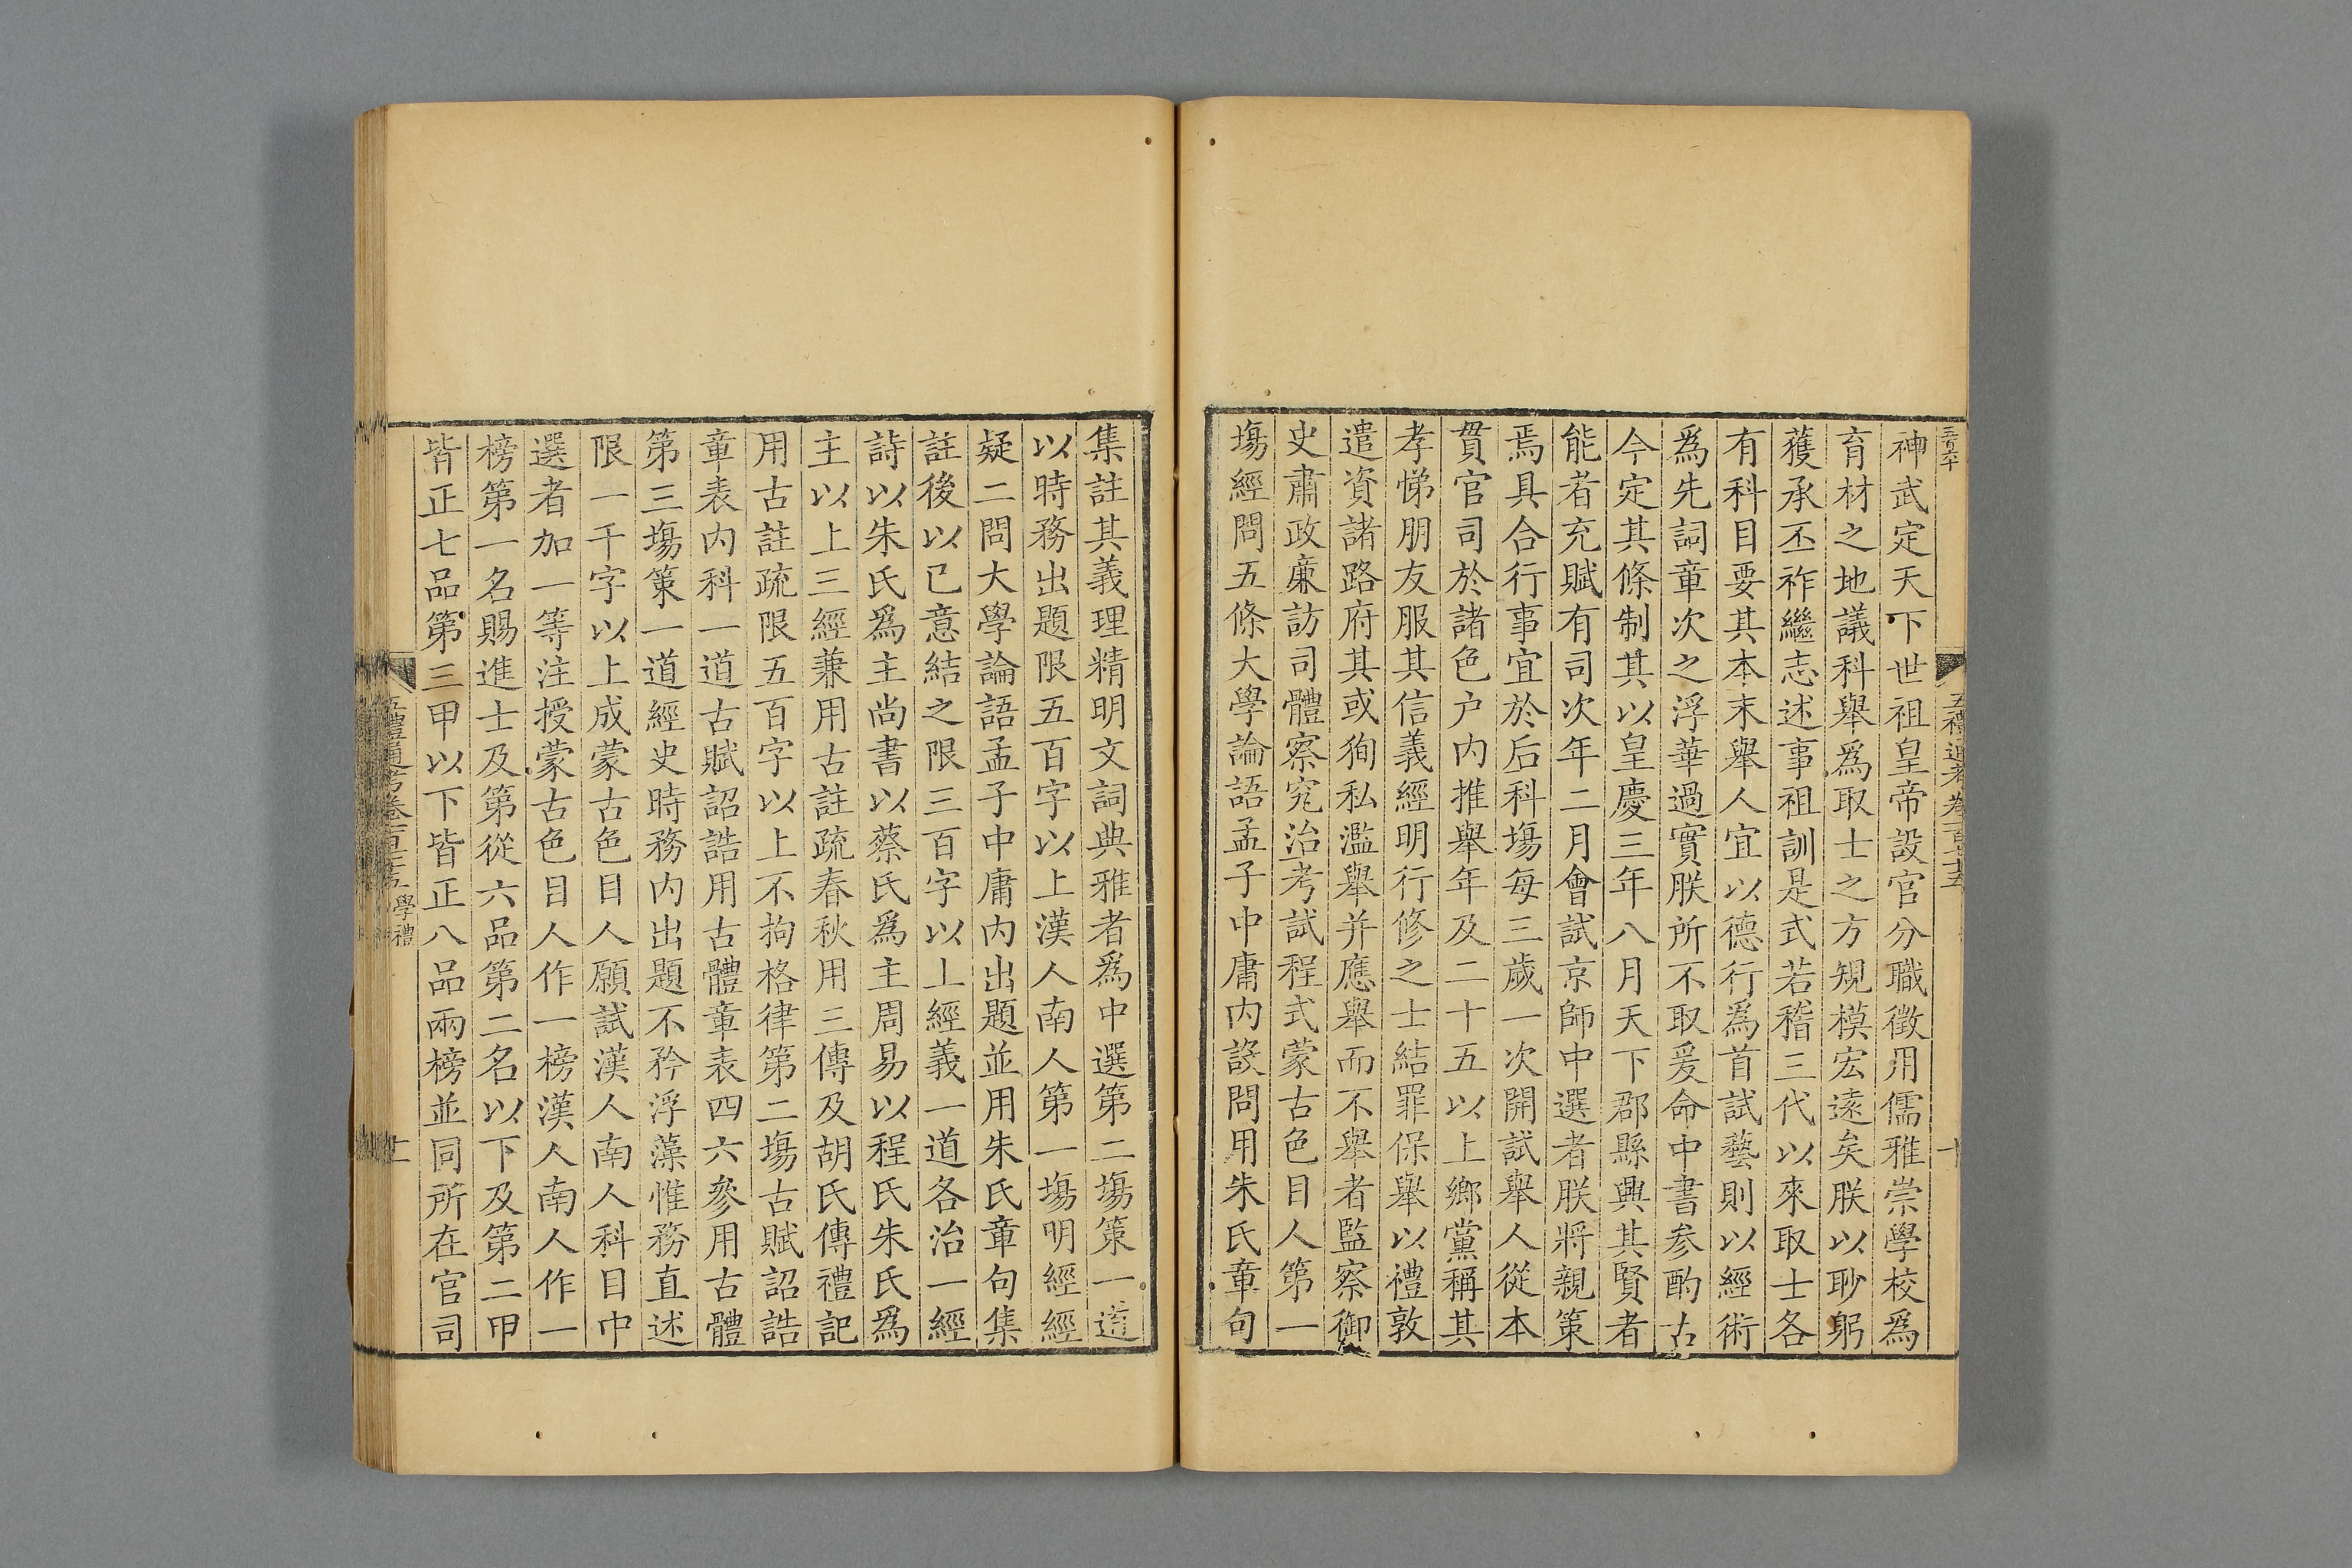 神武定天下世祖皇帝設官分職徵用儒雅崇學校爲
育材之地議科舉爲取士之方規模宏遠矣朕以眇躬
獲承丕祚繼志述事祖訓是式若稽三代以來取士各
有科目要其本末舉人宜以德行爲首試藝則以經術
爲先詞章次之浮華過實朕所不取爰命中書參酌古
今定其條制其以皇慶三年八月天下郡縣興其賢者
能者充賦有司次年二月會試京師中選者朕將親策
焉具合行事宜於后科塲每三歲一次開試舉人從本
貫官司於諸色户内推舉年及二十五以上鄉黨稱其
孝悌朋友服其信義經明行修之士結罪保舉以禮敦
遣資諸路府其或狥私濫舉并應舉而不舉者監察御
史肅政廉訪司體察究治考試程式蒙古色目人第一
塲經問五條大學論語孟子中庸内設問用朱氏章句
集註其義理精明文詞典雅者爲中選第二塲策一道
以時務出題限五百字以上漢人南人第一塲明經經
疑二問大學論語孟子中庸内出題並用朱氏章句集
註後以已意結之限三百字以上經義一道各治一經
詩以朱氏爲主尚書以蔡氏爲主周易以程氏朱氏爲
主以上三經兼用古註疏春秋用三傳及胡氏傳禮記
用古註疏限五百字以上不拘格律第二塲古賦詔誥
章表内科一道古賦詔誥用古體章表四六參用古體
第三塲策一道經史時務内出題不矜浮藻惟務直述
限一千字以上成蒙古色目人願試漢人南人科目中
選者加一等注授蒙古色目人作一榜漢人南人作一
榜第一名賜進士及第從六品第二名以下及第二甲
皆正七品第三甲以下皆正八品兩榜並同所在官司
五禮通考卷一百七十五 學禮